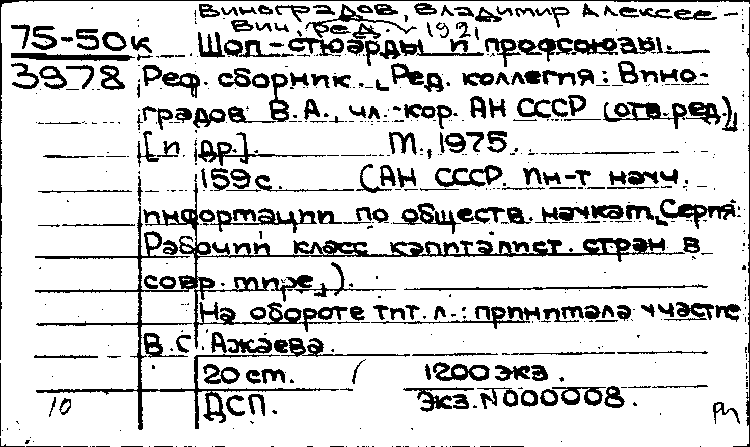 Виноградов, Владимир Алексее-
вич, ред. 1921
75-50к Шоп-стюарды и профсоюзы.
3978 Реф. сборник. [Ред. коллегия: Вино-
градов В.А., чл.-кор. АН СССР (отв.ред.),
[и др.]. М., 1975.
159с. (АН СССР. Ин-т науч.
информации по обществ. наукам. [Серия:
Рабочий класс капиталист. стран в
совр. мире]).
На обороте тит. л.: принимала участие
В.С. Ажаева.
20 ст. 1200 экз.
10 ДСП. Экз. N 000008.